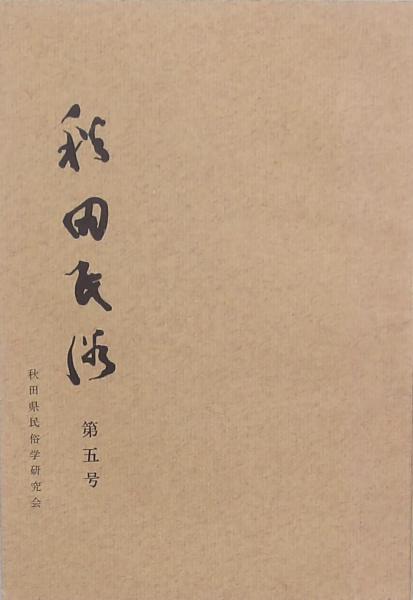 秋田民俗
第五号
秋田県民俗学研究会